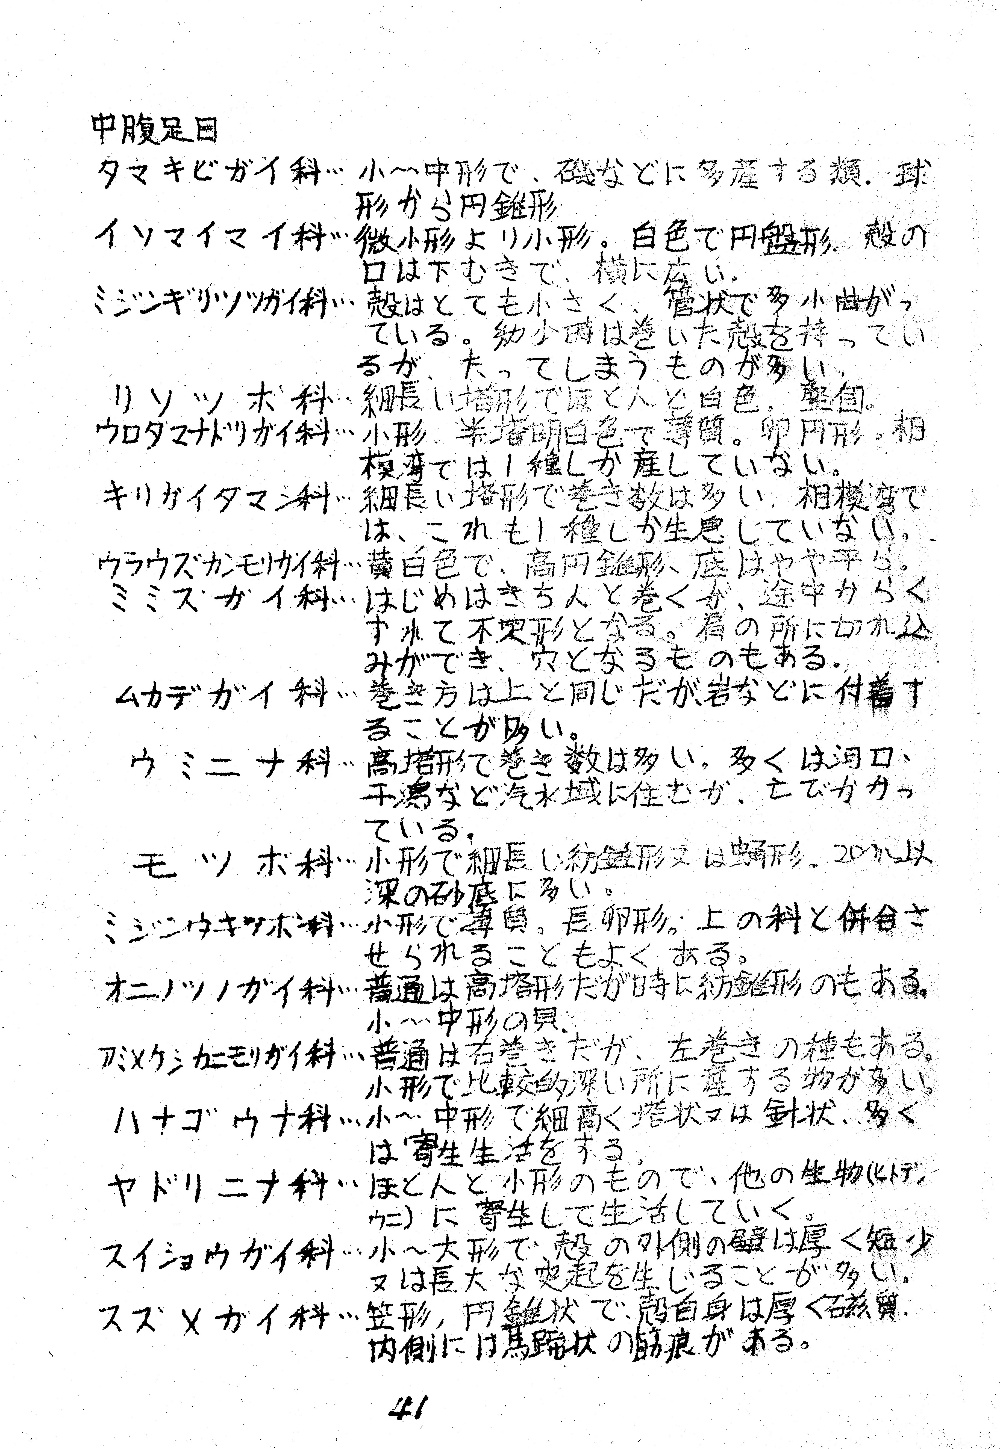 中腹足目
タマキビガイ科…小〜中形で、磯などに多産する類．球
形から円錐形
イソマイマイ科…微小形より小形。白色で円盤形．殻の
口は下むきで、横に広い．
ミジンギリツツガイ科…殻はとても小さく、管状で多少曲がっ
ている。幼少時は巻いた殻を持ってい
るが、たってしまうものが多い．
リソツボ科…細長い塔形でほとんど白色．堅固。
ウロダマナドリガイ科…小形．半塔明白色で薄質。卵円形．相
模湾では1種しか産していない。
キリガイダマシ科…細長い塔形で巻き数は多い．相模湾で
は、これも1種しか生息していない。
ウラウズカンモリガイ科…黄白色で、高円錐形、底はやや平ら。
ミミズガイ科…はじめはきちんと巻くが、途中からく
ずれて不定形となる。肩の所に切れ込
みができ、穴となるものもある．
ムカデガイ科…巻き方は上と同じだが、岩などに付着す
ることが多い。
ウミニナ科…高塔形で巻き数は多い．多くは河口、
干潟など汽水域に住むが、
ている．
モツボ科…小形で細長い紡錘形又は蛹形．20m以
深の砂底に多い．
ミジンウキツボ科…小形で薄質。長卵形．上の科と併合さ
せられることもよくある。
オニノツノガイ科…普通は高塔形だが時に紡錐形のもある．
小〜中形の貝．
アミメケシカニモリガイ科…普通は右巻きだが、左巻きの種もある．
小形で比較的深い所に産する物が多い。
ハナゴウナ科…小〜中形で細高く塔状又は針状．多く
は寄生生活をする．
ヤドリニナ科…ほとんど小形のもので、他の生物(ヒトデ、
ウニ)に寄生して生活していく。
スイショウガイ科…小〜大形で、殻の外側の壁は厚く短少
又は長大な突起を生じることが多い．
スズメガイ科…笠形，円錐状で、殻自身は厚く磁質．
内側には馬蹄状の筋痕がある。
41